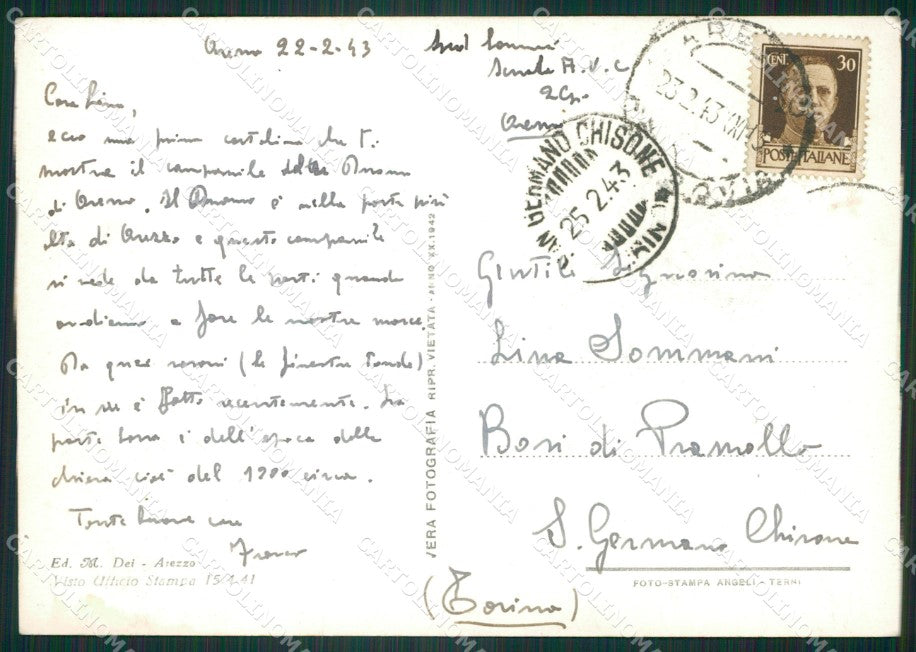 22-2-43
Scuola A.V.C.
2 Cp.
Arezzo
Cara Lina,
ecco una prima cartolina che ti
mostra il campanile del Duomo
di Arezzo. Il Duomo è nella parte più
alta di Arezzo e questo campanile
si vede da tutte le parti quando
andiamo a fare le nostre marce.
(le finestre tonde)
in su è fatto recentemente. La
parte bassa è dell'epoca della
chiesa cioè del 1200 circa.
Tante buone cose
Franco
Ed. M. Dei - Arezzo
Visto Ufficio Stampa 15/4/41
VERA FOTOGRAFIA RIPR. VIETATA - ANNO XX.1942
CENT. 30
POSTE ITALIANE
23.2.43.XXI
SAN GERMANO CHISONE
25.2.43
Gentile Signorina
Lina Sommani
Bosi di Pramollo
S. Germano Chisone
(Torino)
FOTO-STAMPA ANGELI - TERNI
CARTOLINOMANIA